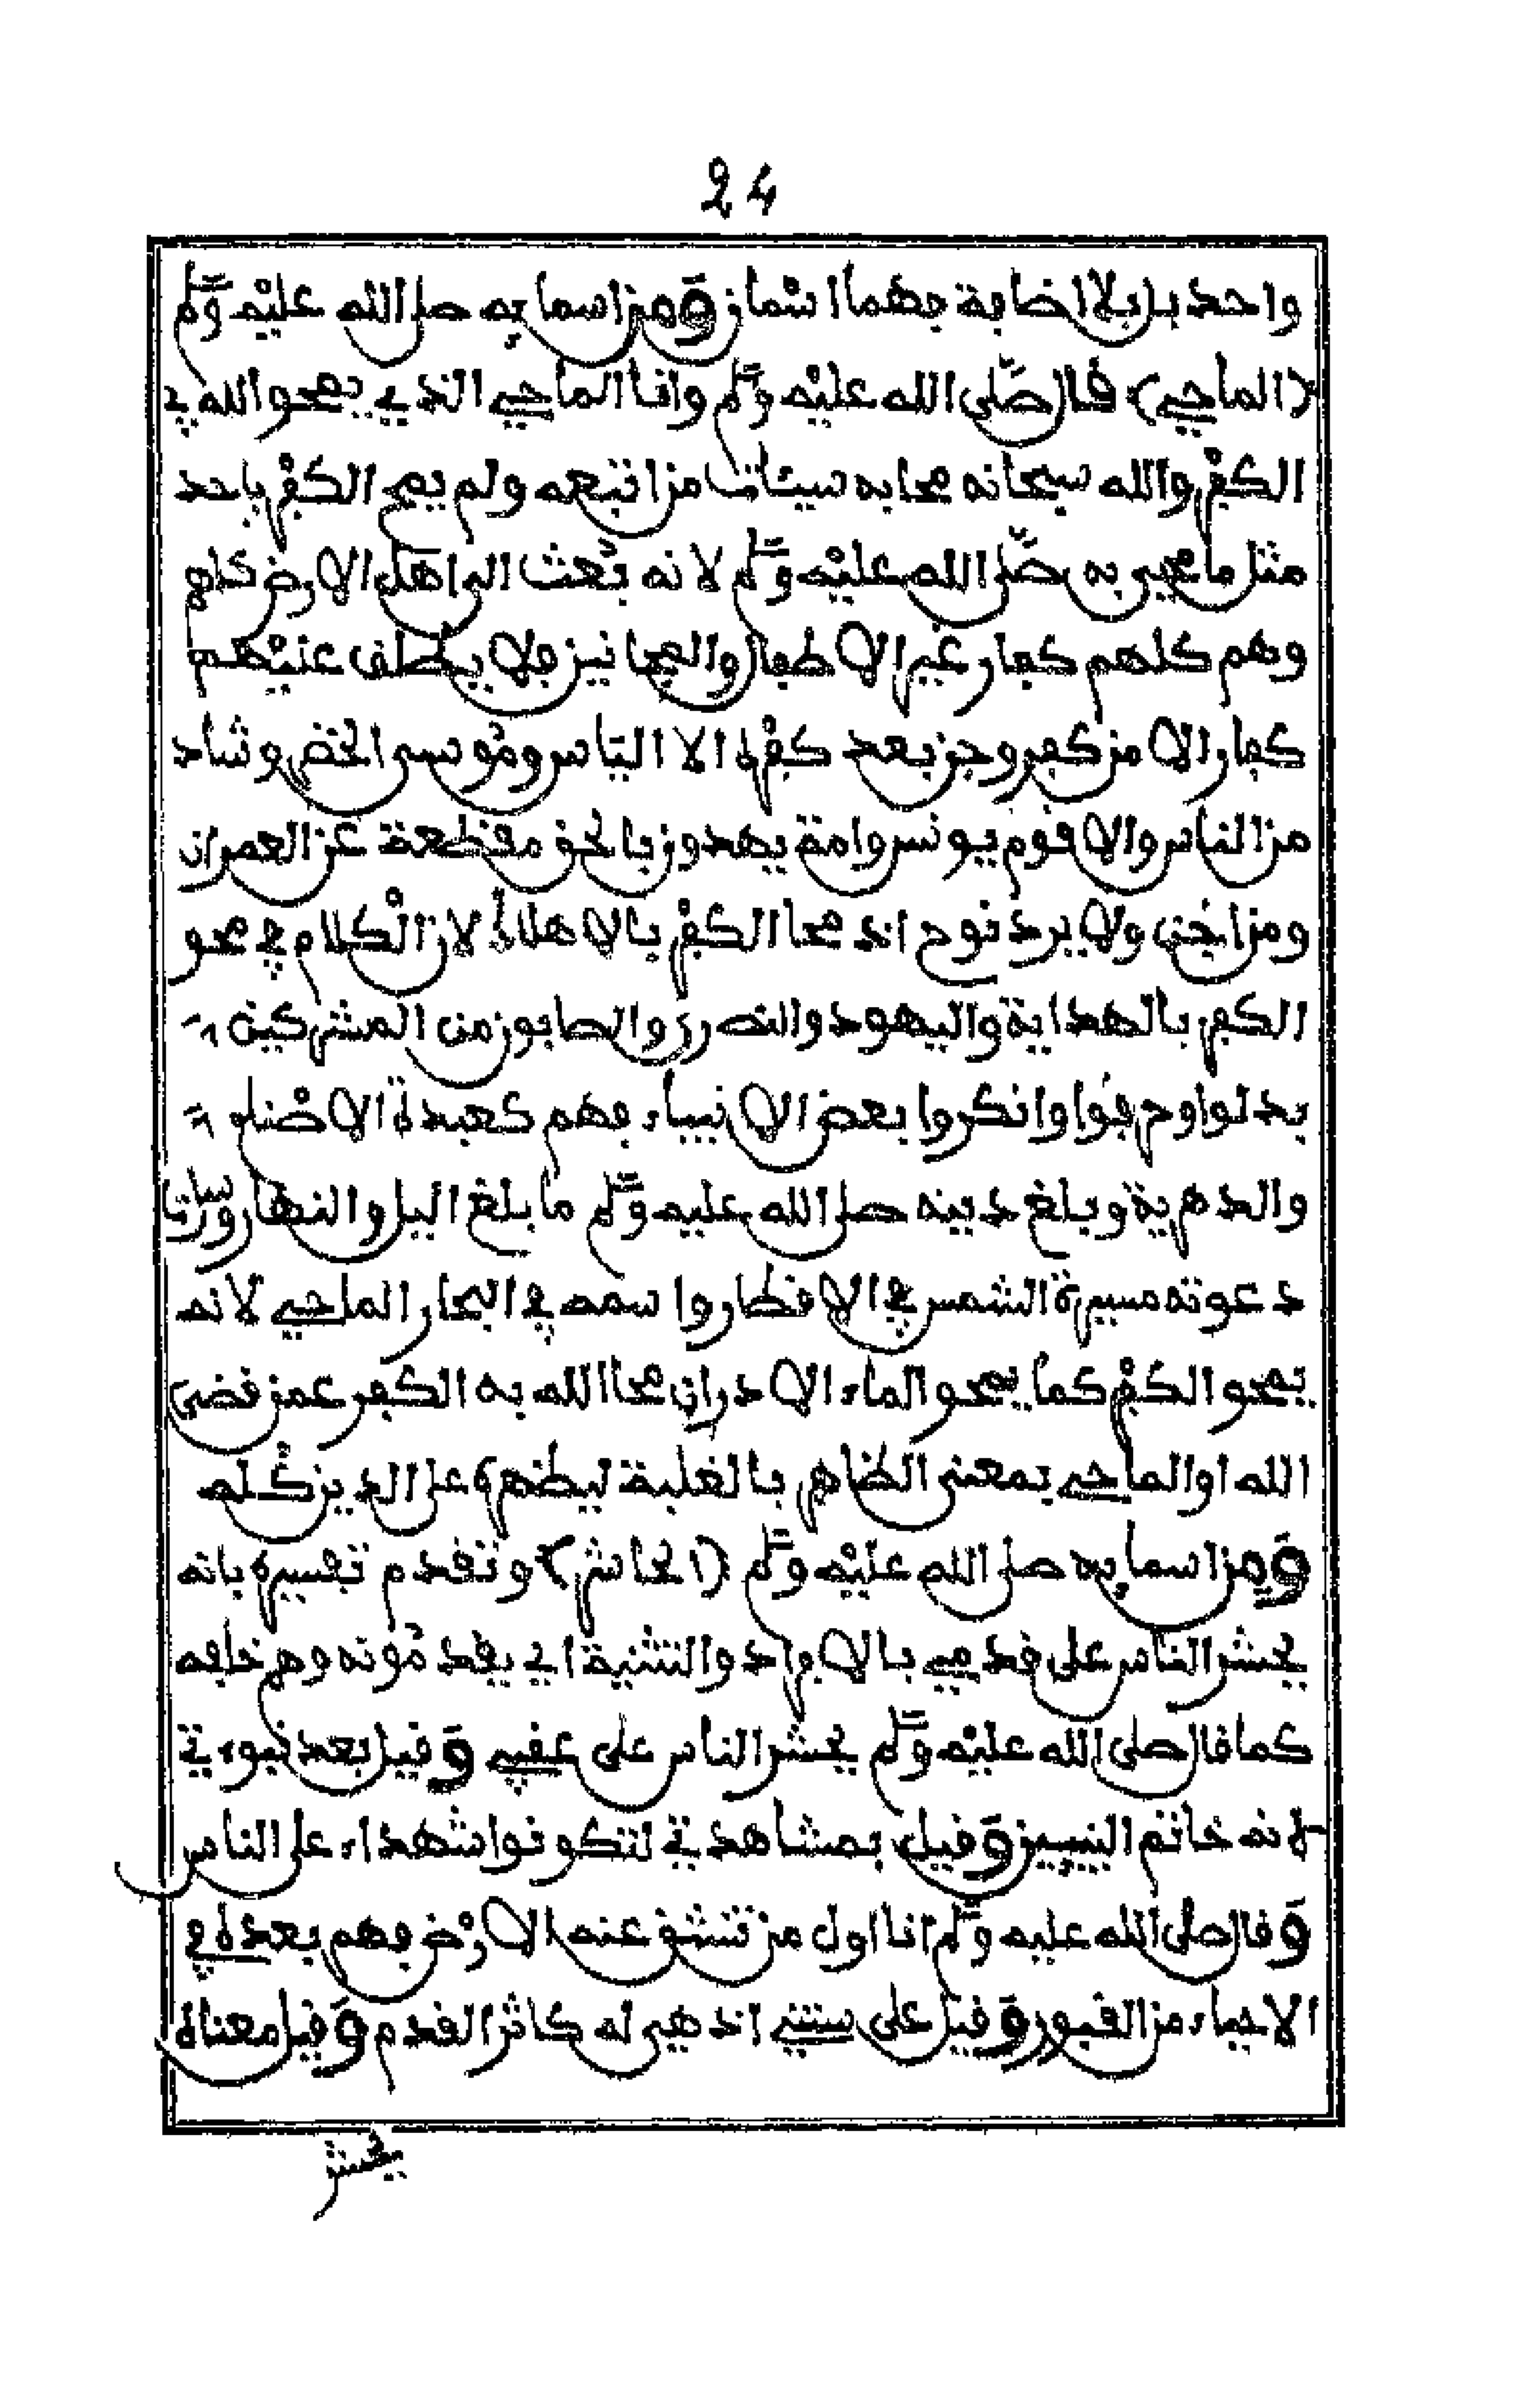 24
واحد بل بلا اضافة فهما اسمان ومن اسمايه صلى الله عليه وسلم
(الماحي) قال صلى الله عليه وسلم وانا الماحي الذي يمحو الله بي
الكفر والله سبحانه محا به سيئات من اتبعه ولم يمح الكفر باحد
مثل ما محي به صلى الله عليه وسلم لانه بعث الى اهل الارض كلهم
وهم كلهم كفار غير الاطفال والمجانين فلا يطلق عليهم
كفار الا من كفر وجن بعد كفره الا الياس وموسى الخضر وشاد
من الناس والا قوم يونس وامة يهدون بالحق مقطعة عن العمران
ومن اجتبى ولا يرد نوح اذ محا الكفر بالاهلاك لان الكلام في محو
الكفر بالهداية واليهود والنصرى والصابون من المشركين
بدلوا وحرفوا وانكروا بعض الانبياء فهم كعبدة الاصنام
والدهرية وبلغ دينه صلى الله عليه وسلم ما بلغ اليل والنهار وسارت
دعوته مسيرة الشمس في الاقطار واسمه في البحار الماحي لانه
يمحو الكفر كما يمحو الماء الادران محا الله به الكفر عمن قضى
الله او الماحي بمعنى الظاهر بالغلبة ليظهره على الدين كله
ومن اسمايه صلى الله عليه وسلم (الحاشر) وتقدم تفسيره بانه
يحشر الناس على قدمي بالافراد والتثنية اي يقدمونه وهم خلفه
كما قال صلى الله عليه وسلم يحشر الناس على عقبي وقيل بعد نبوءتي
لانه خاتم النبيين وقيل بمشاهدتي لتكونوا شهداء على الناس
وقال صلى الله عليه وسلم انا اول من تنشق عنه الارض فهم بعده في
الاحياء من القبور وقيل على سنتي اذ هي له كاثر القدم وقيل معناه
يحشر